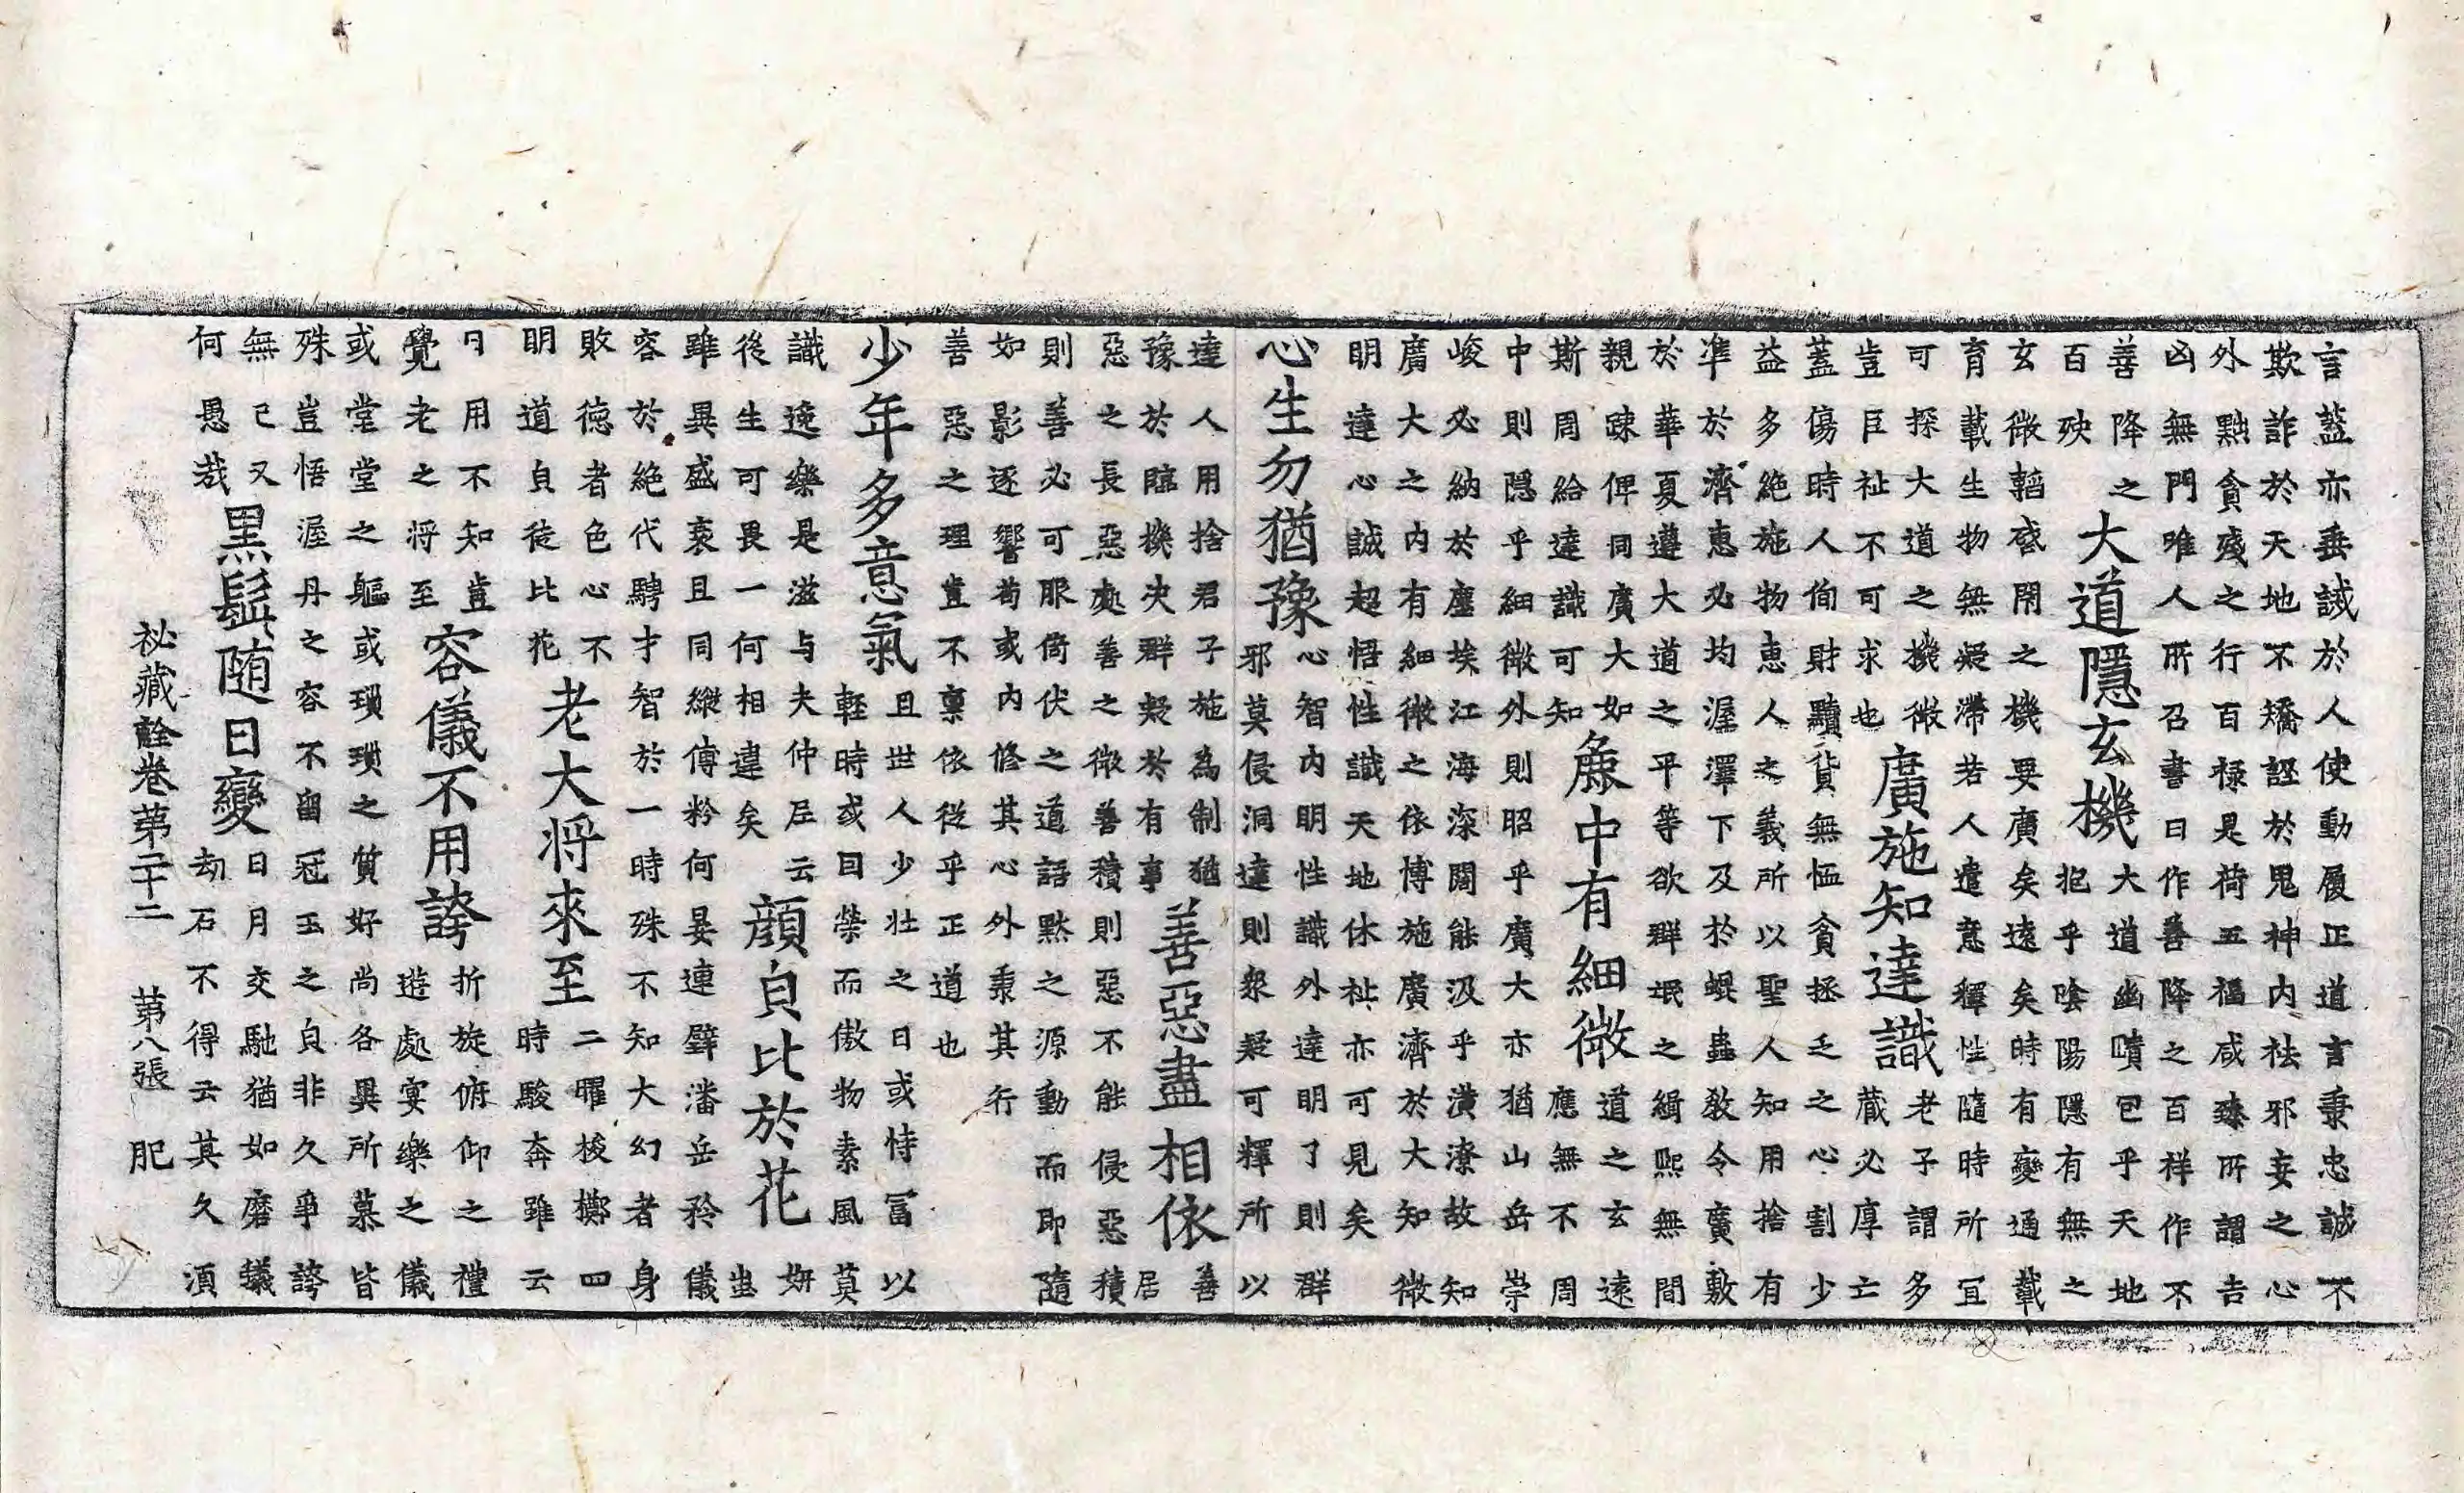 言蓋亦垂誡於人使動履正道言秉忠誠不
欺詐於天地不矯誣於鬼神内祛邪妄之心
外黜貪殘之行百祿是荷五福咸臻所謂吉
凶無門唯人所召書曰作善降之百祥作不
善降之
百殃
大道隱玄機
大道幽賾包乎天地
抱乎陰陽隱有無之
玄微韜啓閉之機要廣矣遠矣時有變通載
育載生物無凝滯若人遣意釋性隨時所冝
可探大道之機微
豈巨祉不可求也
廣施知達識
老子謂多
藏必厚亡
蓋傷時人徇財黷貨無恤貧拯乏之心割少
益多絕施物惠人之義所以聖人知用捨有
準於濟惠必均渥澤下及於蜫蟲敎令廣敷
於華夏遵大道之平等欲群氓之緝熙無間
親踈俾同廣大如
斯周給達識可知
麁中有細微
道之玄遠
應無不周
中則隱乎細微外則昭乎廣大亦猶山岳崇
峻必納於塵埃江海深闊能汲乎潢潦故知
廣大之内有細微之依博施廣濟於大知微
明達心誠超悟性識天地休祉亦可見矣
心生勿猶豫
心智内明性識外達明了則群
邪莫侵洞達則衆疑可釋所以
達人用捨君子施為制猶
豫於臨機決群疑於有事
善惡盡相依
善
居
惡之長惡處善之微善積則惡不能侵惡積
則善必可服倚伏之道語默之源動而即隨
如影逐響苟或内修其心外秉其行
善惡之理豈不稟依從乎正道也
少年多意氣
且世人少壯之日或恃冨以
輕時或因榮而傲物素風莫
識逸樂是滋与夫仲尼云
後生可畏一何相違矣
顏皃比於花
妍
蚩
雖異盛衰且同縱傅粉何晏連璧潘岳矜儀
容於絕代騁才智於一時殊不知大幻者身
敗德者色心不
明道皃徒比花
老大将來至
二曜梭擲四
時駿奔雖云
日用不知豈
覺老之将至
容儀不用誇
折旋俯仰之禮
遊處宴樂之儀
或堂堂之軀或瑣瑣之質好尚各異所慕皆
殊豈悟渥丹之容不留冠玉之皃非久爭誇
無已又
何愚㦲
黑鬢随日變
日月交馳猶如磨蟻
劫石不得云其久湏
祕藏詮卷苐二十二 苐八張 肥